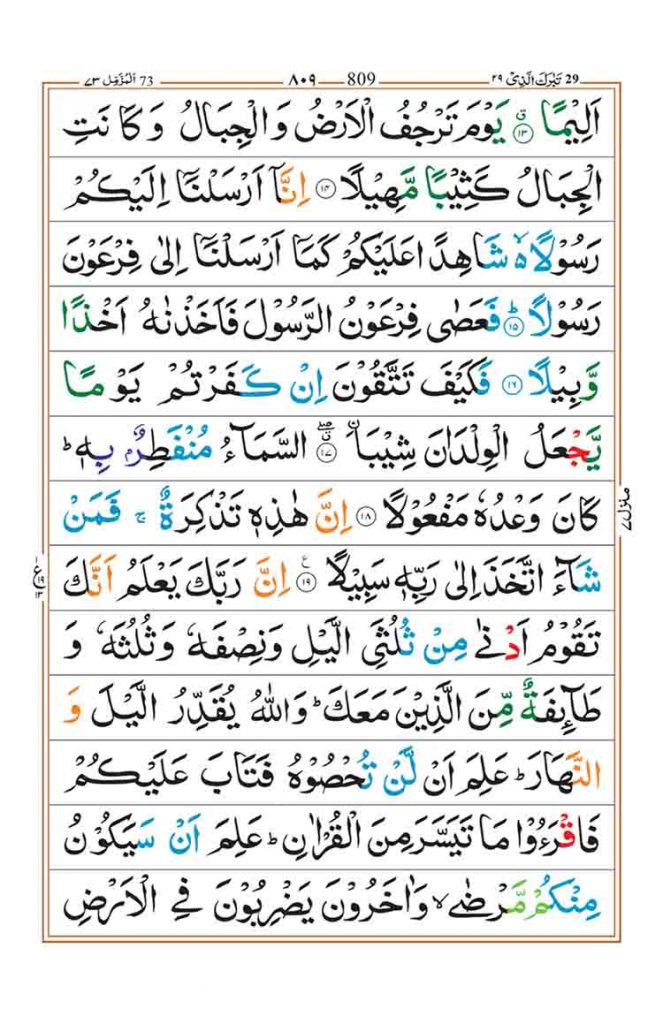 29 تَبٰرَكَ الَّذِیْ ٢٩ 809 ٨٠٩ 73 اَلْمُزَّمِّل ٧٣
اَلِیْمًا ۟ۙ۱۳ یَوْمَ تَرْجُفُ الْاَرْضُ وَ الْجِبَالُ وَ كَانَتِ
الْجِبَالُ كَثِیْبًا مَّهِیْلًا ۱۴ اِنَّاۤ اَرْسَلْنَاۤ اِلَیْكُمْ
رَسُوْلًا ۙ۬ شَاهِدًا عَلَیْكُمْ كَمَاۤ اَرْسَلْنَاۤ اِلٰی فِرْعَوْنَ
رَسُوْلًا ؕ۱۵ فَعَصٰی فِرْعَوْنُ الرَّسُوْلَ فَاَخَذْنٰهُ اَخْذًا
وَّبِیْلًا ۱۶ فَكَیْفَ تَتَّقُوْنَ اِنْ كَفَرْتُمْ یَوْمًا
یَّجْعَلُ الْوِلْدَانَ شِیْبَا ۱۷ السَّمَآءُ مُنْفَطِرٌۢ بِهٖ ؕ
كَانَ وَعْدُهٗ مَفْعُوْلًا ۱۸ اِنَّ هٰذِهٖ تَذْكِرَةٌ ۚ فَمَنْ
شَآءَ اتَّخَذَ اِلٰی رَبِّهٖ سَبِیْلًا ۱۹ اِنَّ رَبَّكَ یَعْلَمُ اَنَّكَ
تَقُوْمُ اَدْنٰی مِنْ ثُلُثَیِ الَّیْلِ وَنِصْفَهٗ وَثُلُثَهٗ وَ
طَآىِٕفَةٌ مِّنَ الَّذِیْنَ مَعَكَ ؕ وَاللّٰهُ یُقَدِّرُ الَّیْلَ وَ
النَّهَارَ ؕ عَلِمَ اَنْ لَّنْ تُحْصُوْهُ فَتَابَ عَلَیْكُمْ
فَاقْرَءُوْا مَا تَیَسَّرَ مِنَ الْقُرْاٰنِ ؕ عَلِمَ اَنْ سَیَكُوْنُ
مِنْكُمْ مَّرْضٰی ۙ وَاٰخَرُوْنَ یَضْرِبُوْنَ فِی الْاَرْضِ
منزل ٧
ع ١٩ ١٣